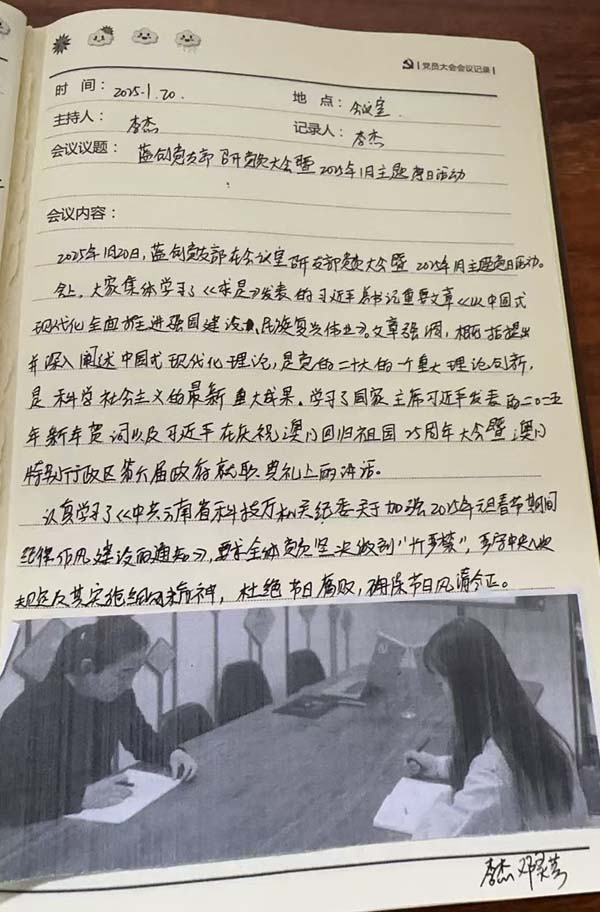 党员大会会议记录
时间： 2025.1.20. 地点： 会议室.
主持人： 李杰 记录人： 李杰
会议议题： 蓝创党支部召开党员大会暨2025年1月主题党日活动
会议内容：
2025年1月20日，蓝创党支部在会议室召开支部党员大会暨2025年1月主题党日活动。
会上，大家集体学习了《求是》发表的习近平总书记重要文章《以中国式
现代化全面推进强国建设、民族复兴伟业》。文章强调，概括提出
并深入阐述中国式现代化理论，是党的二十大的一个重大理论创新，
是科学社会主义的最新重大成果。学习了国家主席习近平发表的二〇二五
年新年贺词以及习近平在庆祝澳门回归祖国25周年大会暨澳门
特别行政区第六届政府就职典礼上的讲话。
认真学习了《中共云南省科技厅机关纪委关于加强2025年元旦春节期间
作风建设的通知》，要求全体党员坚决做到"十严禁"，严守中央八项
规定及其实施细则精神，杜绝节日腐败，确保节日风清气正。
李杰 邓